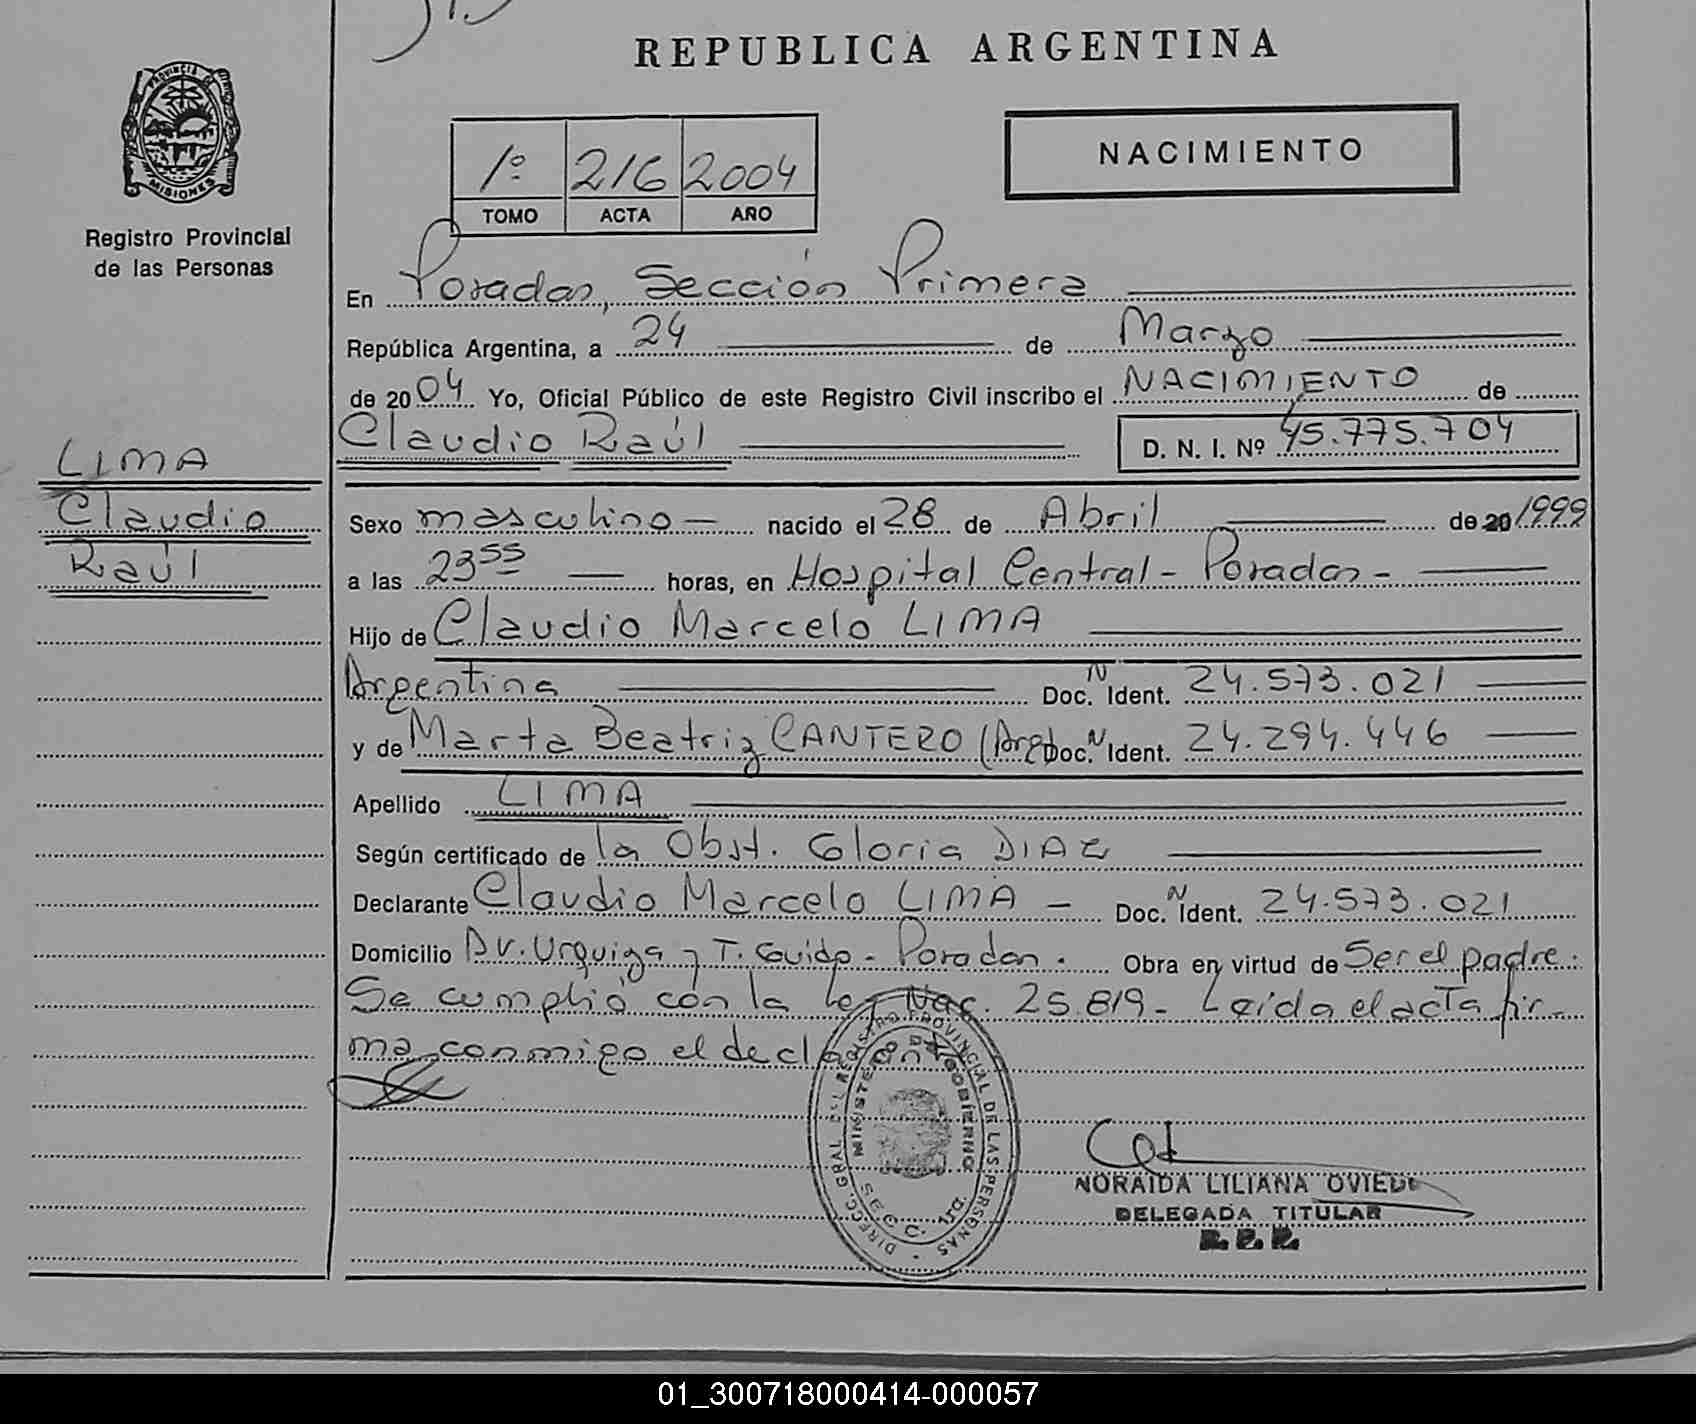 REPUBLICA ARGENTINA
PROVINCIA DE
MISIONES
Registro Provincial
de las Personas
1º 216 2004
TOMO ACTA AÑO
NACIMIENTO
En Posadas, Sección Primera
República Argentina, a 24 de Marzo
de 2004 Yo, Oficial Público de este Registro Civil inscribo el NACIMIENTO de
Claudio Raúl D. N. I. Nº 45.775.704
LIMA
Claudio
Raúl
Sexo masculino nacido el 28 de Abril de 20 1999
a las 23 55 horas, en Hospital Central - Posadas -
Hijo de Claudio Marcelo LIMA
Argentina Doc. N Ident. 24.573.021
y de Marta Beatriz CANTERO (Arg. Doc. N Ident. 24.294.446
Apellido LIMA
Según certificado de la Obst. Gloria DIAZ
Declarante Claudio Marcelo LIMA - Doc. N Ident. 24.573.021
Domicilio Av. Urquiza y T. Guido - Posadas. Obra en virtud de Ser el padre.
Se cumplió con la ley Nac. 25.819 - Leída el acta fir-
ma conmigo el decl
DIRECC. GRAL. DEL REGISTRO PROVINCIAL DE LAS PERSONAS
MINISTERIO DE GOBIERNO
SECC. 1ra.
NORAIDA LILIANA OVIEDO
DELEGADA TITULAR
R.P.P.
01_300718000414-000057